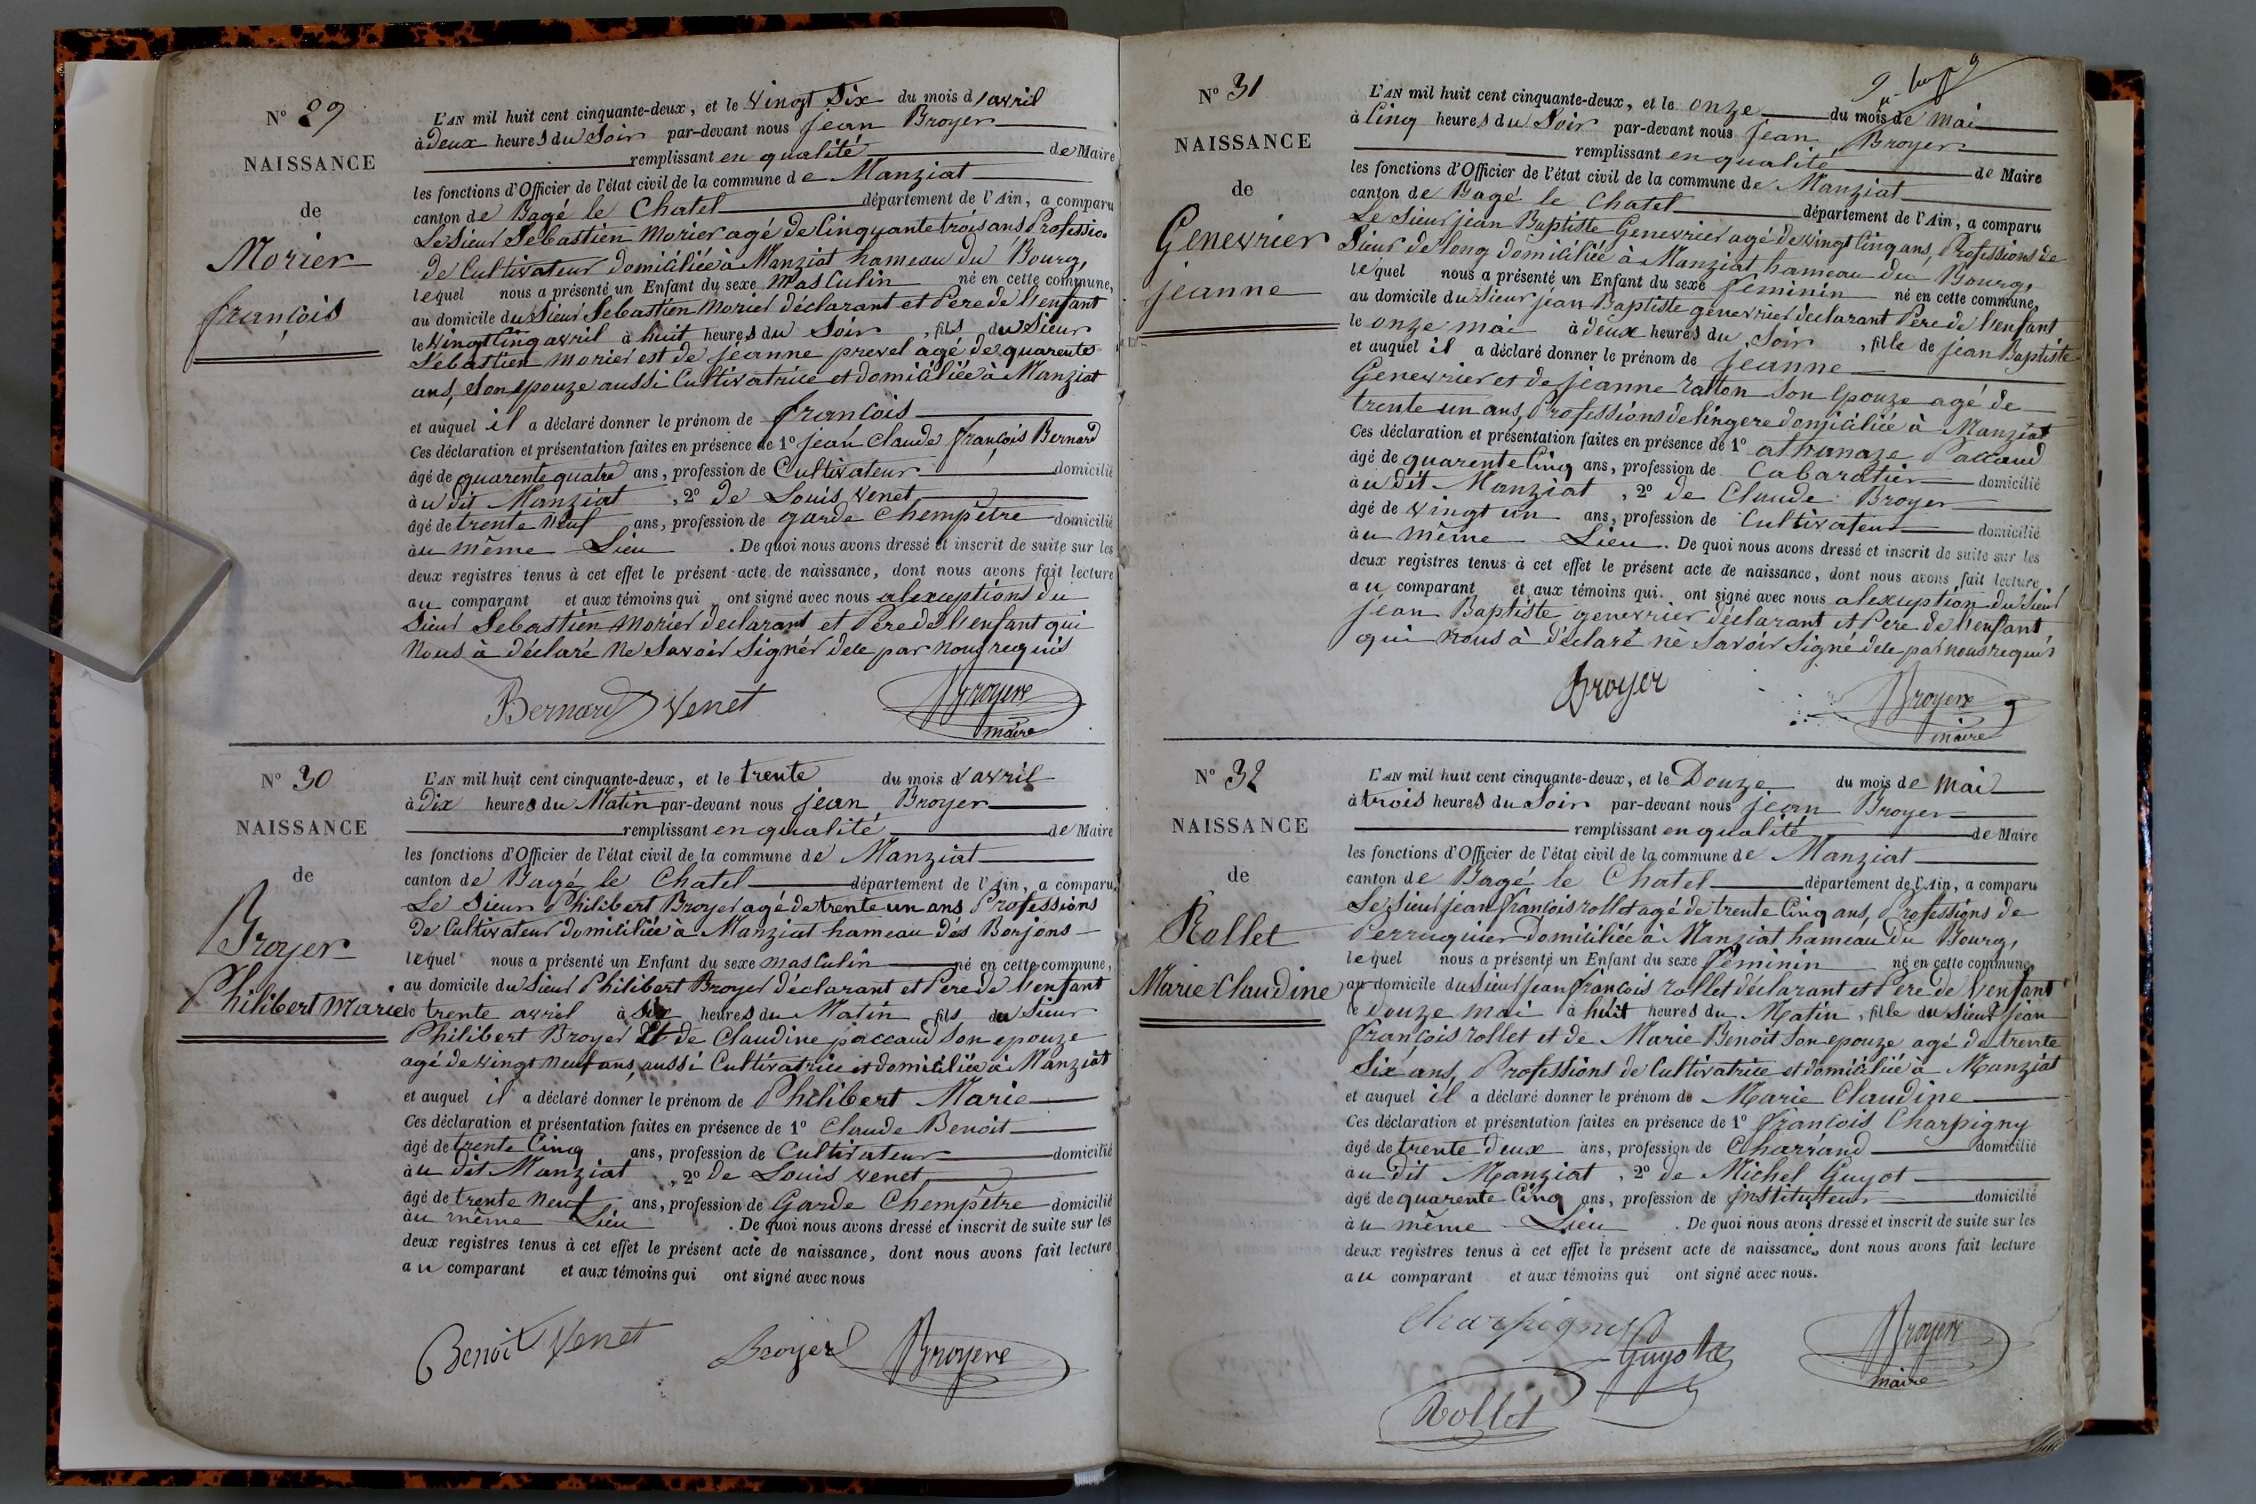 N° 29
NAISSANCE
de
Morier
françois
L'AN mil huit cent cinquante-deux, et le vingt six du mois d'avril
à deux heures du Soir par-devant nous jean Broyer
remplissant en qualité de Maire
les fonctions d'Officier de l'état civil de la commune de Manziat
canton de Bagé le Chatel département de l'Ain, a comparu
Le Sieur Sebastien Morier agé de Cinquante trois ans Professio.
de Cultivateur domiciliée à Manziat hameau du Bourg,
lequel nous a présenté un Enfant du sexe masculin né en cette commune,
au domicile du Sieur Sebastien Morier déclarant et Pere de l'enfant
le vingt Cinq avril à huit heures du Soir, fils du Sieur
Sébastien morier est de jéanne prevel agé de quarente
ans, Son epouze aussi Cultivatrice et domiciliée à Manziat
et auquel il a déclaré donner le prénom de françois
Ces déclaration et présentation faites en présence de 1° jean Claude françois Bernard
âgé de quarente quatre ans, profession de Cultivateur domicilié
à u dit Manziat, 2° de Louis Venet
âgé de trente neuf ans, profession de garde Chempêtre domicilié
au même Lieu. De quoi nous avons dressé et inscrit de suite sur les
deux registres tenus à cet effet le présent acte de naissance, dont nous avons fait lecture
au comparant et aux témoins qui ont signé avec nous alexceptions du
Sieur Sebastien Morier declarant et Pere de l'enfant qui
nous à déclaré ne Savoir Signér dele par nous requis
Bernard Venet Broyer
maire
N° 30
NAISSANCE
de
Broyer
Philibert Marie
L'AN mil huit cent cinquante-deux, et le trente du mois d'avril
à Dix heures du Matin par-devant nous jean Broyer
remplissant en qualité de Maire
les fonctions d'Officier de l'état civil de la commune de Manziat
canton de Bagé le Chatel département de l'Ain, a comparu,
Le Sieur Philibert Broyer agé de trente un ans Professions
de Cultivateur domiciliée à Manziat hameau dés Borjons
lequel nous a présenté un Enfant du sexe masculin né en cette commune,
au domicile du Sieur Philibert Broyer déclarant et Pere de l'enfant
le trente avril à Six heures du Matin fils du Sieur
Philibert Broyer Et de Claudine paccaud Son epouze
agé de vingt neuf ans, aussi Cultivatrice et domiciliée à Manziat
et auquel il a déclaré donner le prénom de Philibert Marie
Ces déclaration et présentation faites en présence de 1° Claude Benoit
âgé de trente Cinq ans, profession de Cultivateur domicilié
à u dit Manziat, 2° de Louis Venet
âgé de trente neuf ans, profession de Garde Chempêtre domicilié
au même Lieu. De quoi nous avons dressé et inscrit de suite sur les
deux registres tenus à cet effet le présent acte de naissance, dont nous avons fait lecture
au comparant et aux témoins qui ont signé avec nous
Benoit Venet Broyer Broyer
N° 31
NAISSANCE
de
Genevrier
jeanne
L'AN mil huit cent cinquante-deux, et le onze du mois de Mai
à Cinq heures du Soir par-devant nous jean Broyer
remplissant en qualité de Maire
les fonctions d'Officier de l'état civil de la commune de Manziat
canton de Bagé le Chatel département de l'Ain, a comparu
Le Sieur jean Baptiste Genevrier agé de vingt Cinq ans, Professions de
Sieur de long domiciliée à Manziat hameau du Bourg,
lequel nous a présenté un Enfant du sexe feminin né en cette commune,
au domicile du Sieur jean Baptiste genevrier déclarant Pére de l'enfant
le onze mai à deux heures du Soir, fille de jean Baptiste
et auquel il a déclaré donner le prénom de jeanne
Genevrier et de jeanne ratton Son epouze agé de
trente un ans, Professions de lingere domiciliée à Manziat
Ces déclaration et présentation faites en présence de 1° athanaze Paccaud
âgé de quarente Cinq ans, profession de Cabaratier domicilié
à u dit Manziat, 2° de Claude Broyer
âgé de vingt un ans, profession de Cultivateur domicilié
au même Lieu. De quoi nous avons dressé et inscrit de suite sur les
deux registres tenus à cet effet le présent acte de naissance, dont nous avons fait lecture
au comparant et aux témoins qui ont signé avec nous alexception du Sieur
jéan Baptiste genevrier déclarant et Pere de l'enfant
qui nous à déclaré né Savoir Signé dele par nous requis
Broyer Broyer
maire
N° 32
NAISSANCE
de
Rollet
Marie Claudine
L'AN mil huit cent cinquante-deux, et le Douze du mois de Mai
à trois heures du Soir par-devant nous jean Broyer
remplissant en qualité de Maire
les fonctions d'Officier de l'état civil de la commune de Manziat
canton de Bagé le Chatel département de l'Ain, a comparu
Le Sieur jean françois rollet agé de trente Cinq ans, Professions de
Perruquier Domiciliée à Manziat hameau du Bourg,
lequel nous a présenté un Enfant du sexe féminin né en cette commune,
au domicile du Sieur jean françois rollet déclarant et Pére de l'enfant
le Douze mai à huit heures du Matin, fille du Sieur jean
françois rollet et de Marie Benoit Son epouze agé de trente
Six ans, Professions de Cultivatrice et domiciliée à Manziat
et auquel il a déclaré donner le prénom de Marie Claudine
Ces déclaration et présentation faites en présence de 1° françois Charpigny
âgé de trente deux ans, profession de Charrand domicilié
à u dit Manziat, 2° de Michel Guyot
âgé de quarente Cinq ans, profession de jnstituteur domicilié
au même Lieu. De quoi nous avons dressé et inscrit de suite sur les
deux registres tenus à cet effet le présent acte de naissance, dont nous avons fait lecture
au comparant et aux témoins qui ont signé avec nous.
Charpigny Guyot Broyer
maire
Rollet